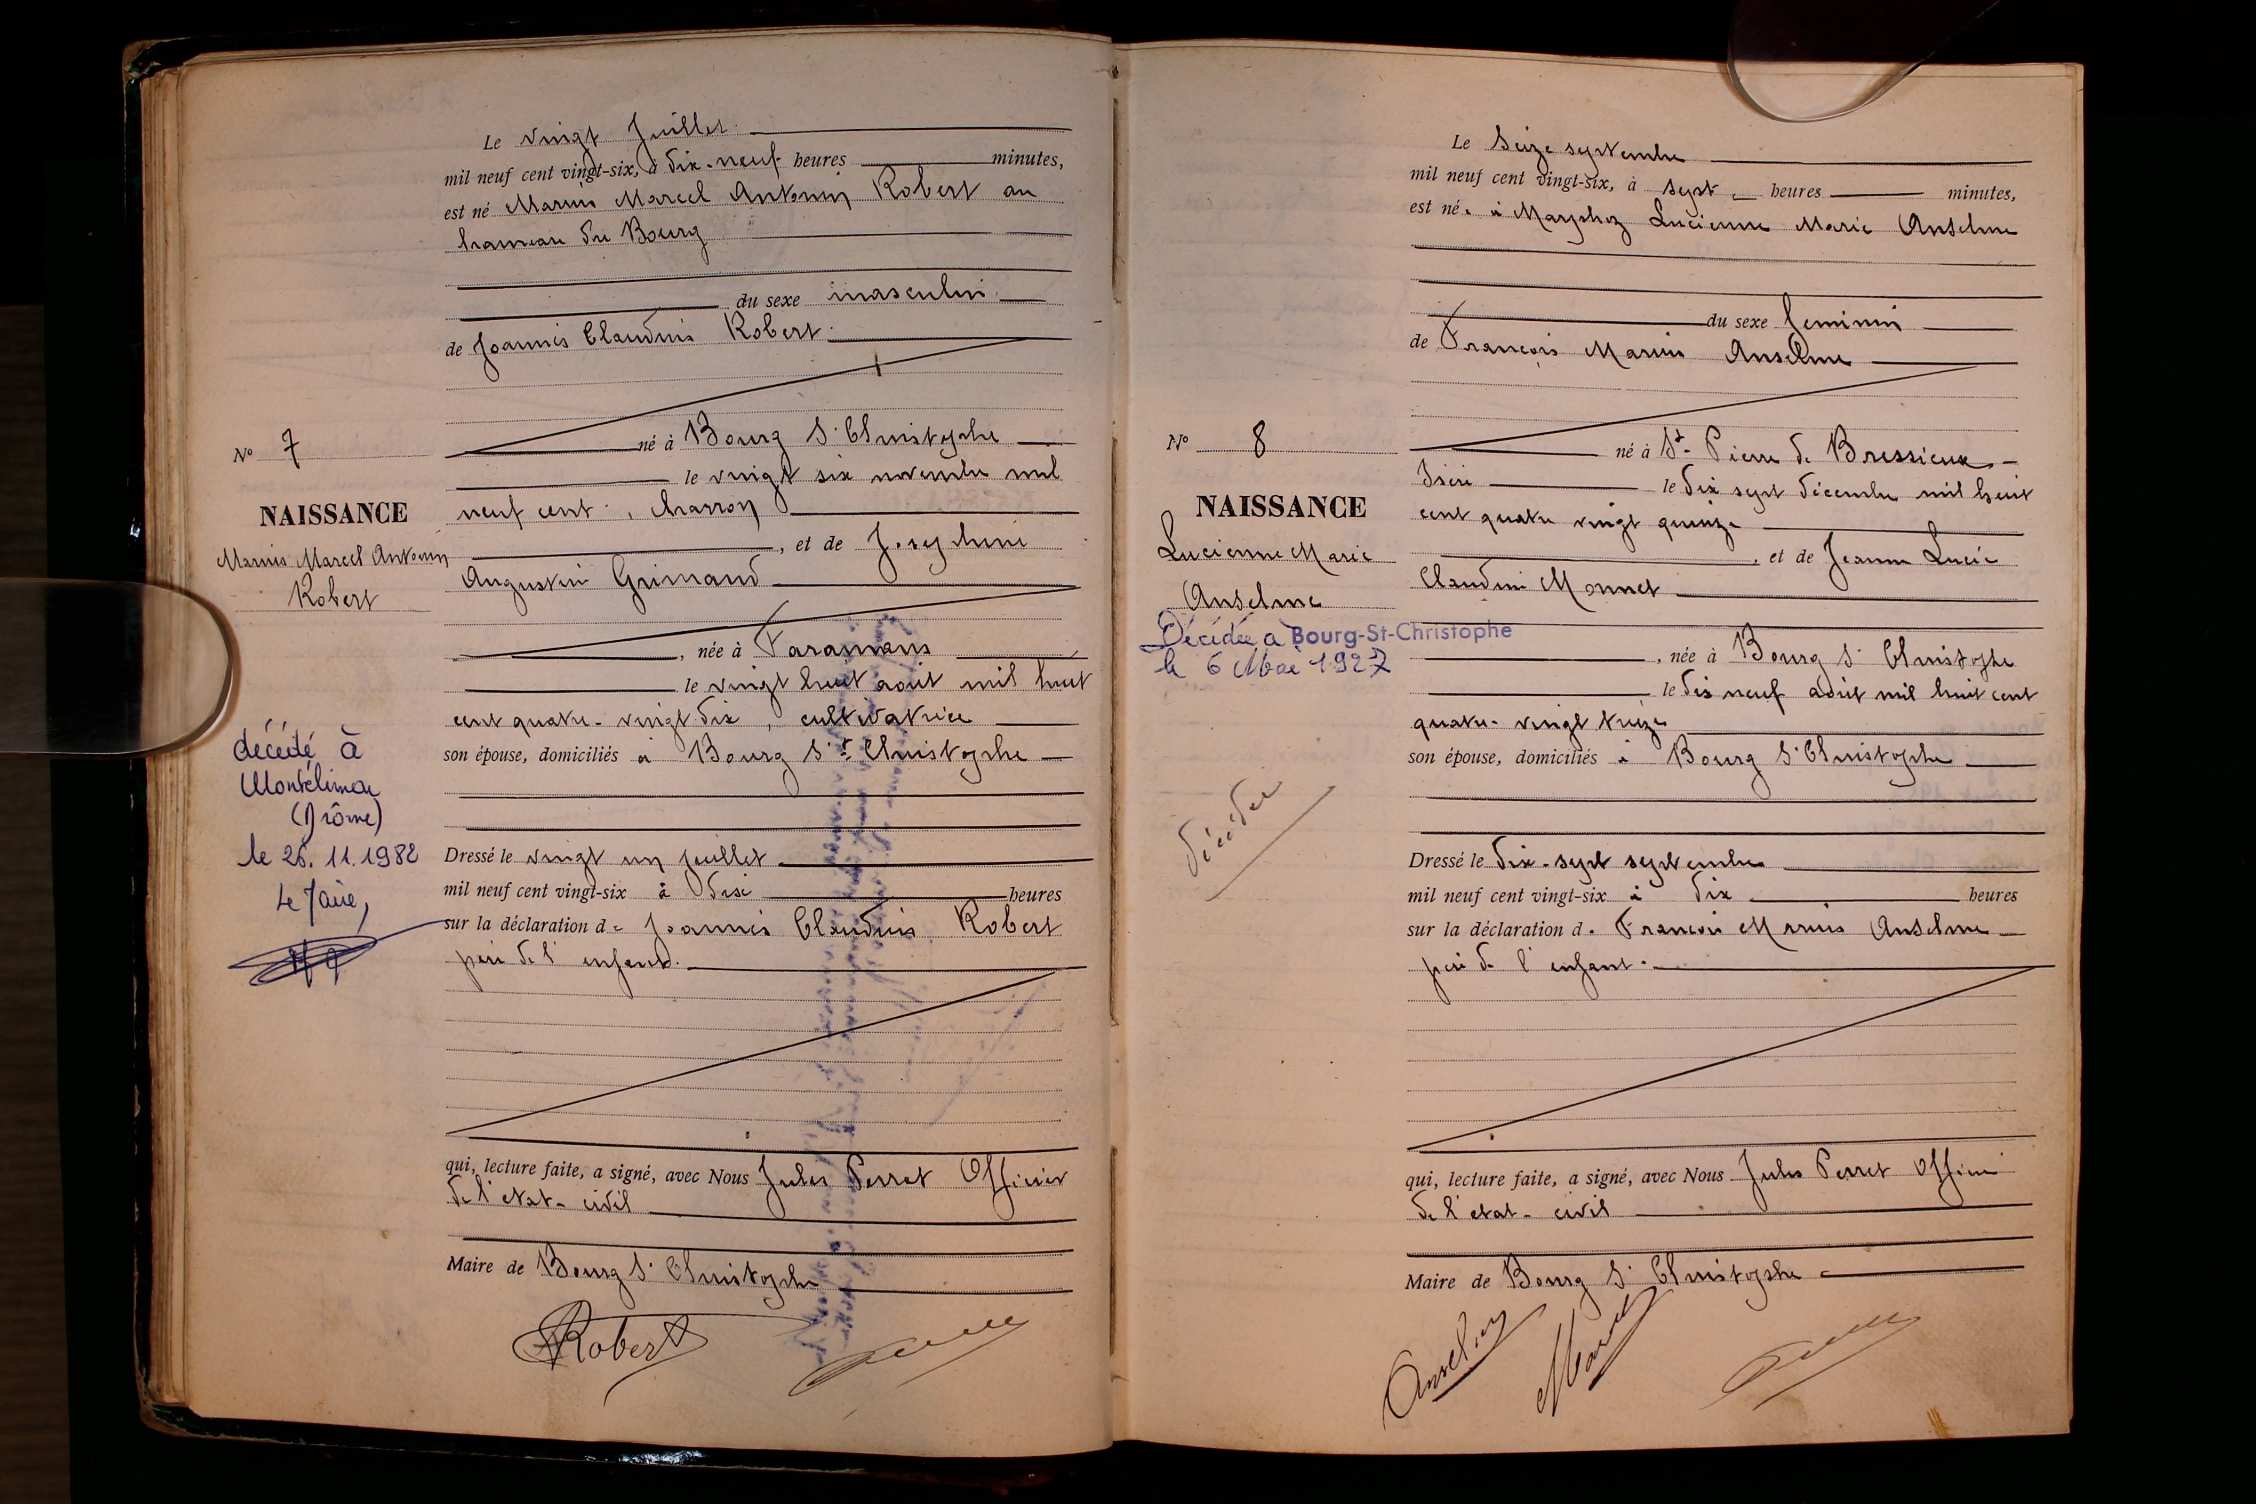 Le vingt Juillet
mil neuf cent vingt-six, à dix-neuf heures minutes,
est né Marius Marcel Antonin Robert au
hameau du Bourg
du sexe masculin
de Joannès Claudius Robert
né à Bourg St Christophe
le vingt six novembre mil
neuf cent, charron
, et de Joséphine
Augustine Grimaud
, née à Faramans
le vingt huit août mil huit
cent quatre-vingt dix, cultivatrice
son épouse, domiciliés à Bourg St Christophe
Dressé le vingt un juillet
mil neuf cent vingt-six à dix heures
sur la déclaration de Joannès Claudius Robert
père de l'enfant.
qui, lecture faite, a signé, avec Nous Jules Perret Officier
de l'etat-civil
Maire de Bourg St Christophe
Robert
No 7
NAISSANCE
Marius Marcel Antonin
Robert
décédé à
Montélimar
(Drôme)
le 26.11.1982
Le Maire,
Le Seize septembre
mil neuf cent vingt-six, à sept heures minutes,
est née à Lucienne Marie Anselme
du sexe féminin
de François Marius Anselme
né à St-Pierre de Bressieux
Isère le dix sept décembre mil huit
cent quatre vingt quinze
, et de Jeanne Lucie
Claudine Monnet
, née à Bourg St Christophe
le dix neuf août mil huit cent
quatre-vingt treize
son épouse, domiciliés à Bourg St Christophe
Dressé le dix-sept septembre
mil neuf cent vingt-six à dix heures
sur la déclaration de François Marius Anselme
père de l'enfant.
qui, lecture faite, a signé, avec Nous Jules Perret Officier
de l'etat-civil
Maire de Bourg St Christophe
No 8
NAISSANCE
Lucienne Marie
Anselme
Décédée à Bourg-St-Christophe
le 6 Mai 1927
décédée